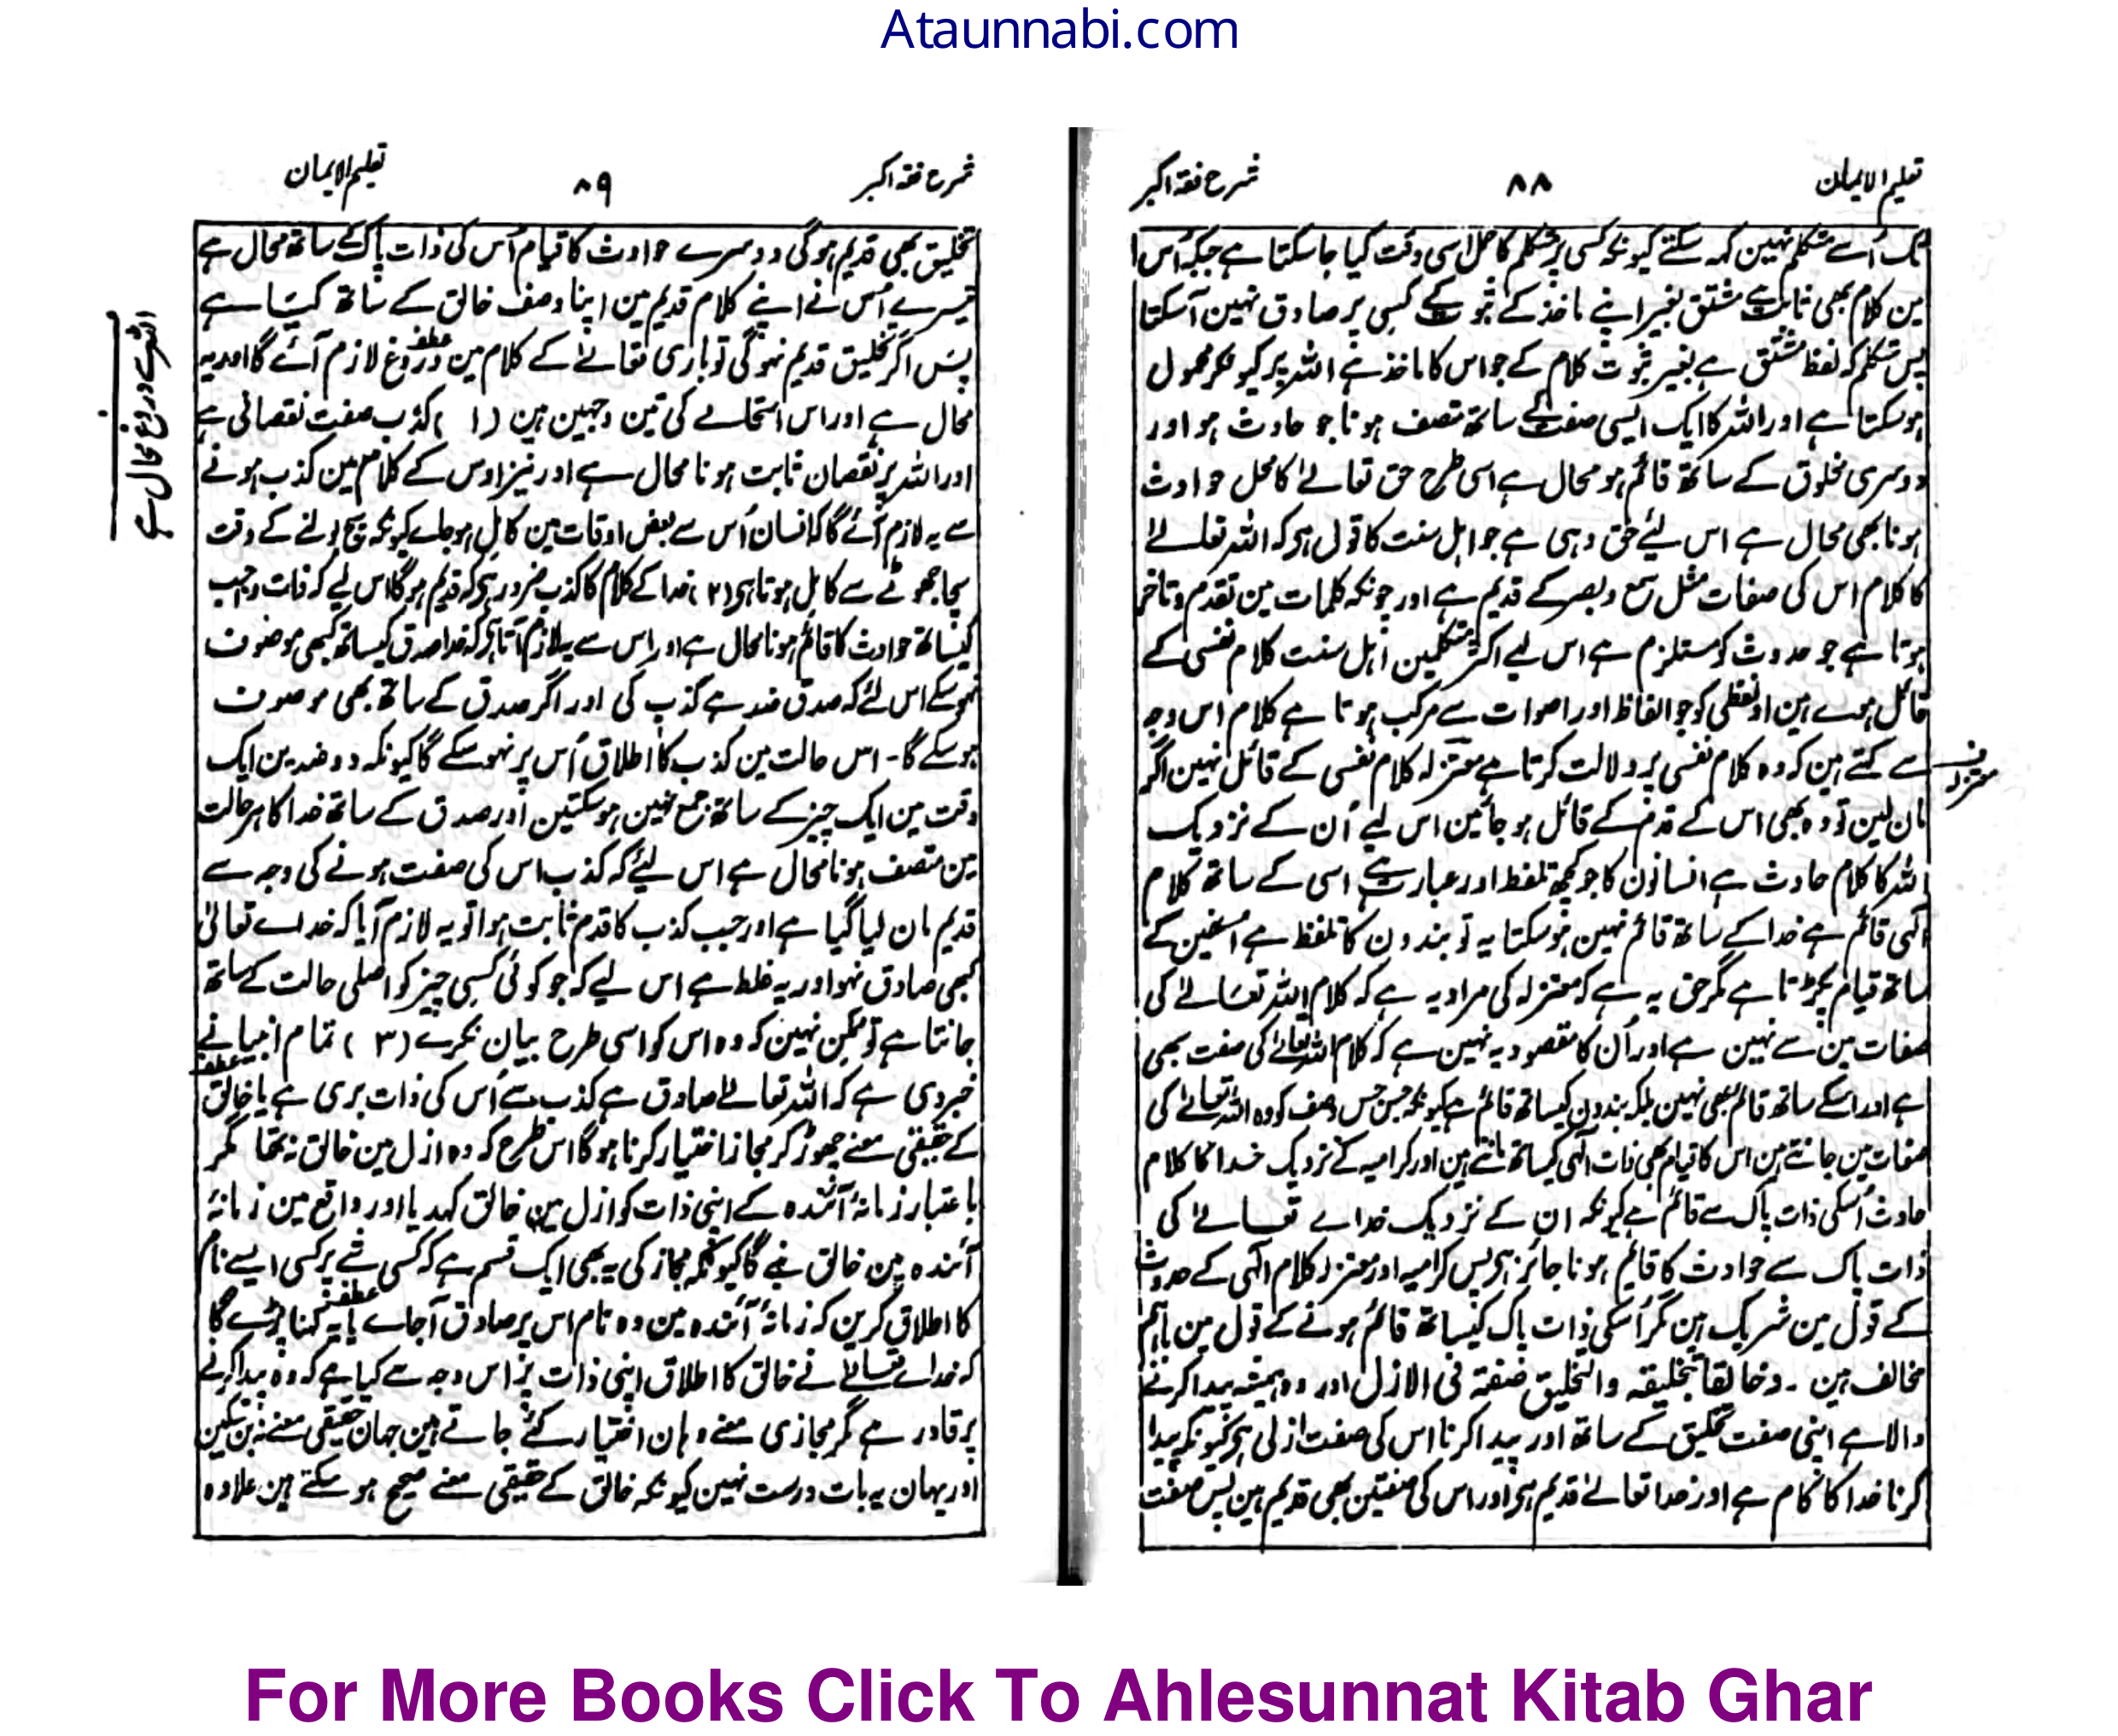 Ataunnabi.com
تعلیم الایمان ۸۸ شرح فقہ اکبر
تک اُسے متکلم نہین کہہ سکتے کیونکہ کسی پر متکلم کا حمل اسی وقت کیا جا سکتا ہے جبکہ اُس
مین کلام بھی ثابت ہے مشتق بغیر اپنے ماخذ کے ثبوت کے کسی پر صادق نہین آسکتا
پس متکلم کہ لفظ مشتق ہے بغیر ثبوت کلام کے جو اس کا ماخذ ہے اللہ پر کیونکر محمول
ہو سکتا ہے اور اللہ کا ایک ایسی صفت کے ساتھ متصف ہونا جو حادث ہو اور
دوسری مخلوق کے ساتھ قائم ہو محال ہے اسی طرح حق تعالےٰ کا محل حوادث
ہونا بھی محال ہے اس لیئے حق وہی ہے جو اہل سنت کا قول ہی کہ اللہ تعالےٰ
کا کلام اس کی صفات مثل سمع و بصر کے قدیم ہے اور چونکہ کلمات مین تقدم و تاخر
ہوتا ہے جو حدوث کو مستلزم ہے اس لیے اکثر متکلمین اہل سنت کلام نفسی کے
قائل ہوے ہین اور لفظی کو جو الفاظ اور اصوات سے مرکب ہوتا ہے کلام اس وجہ
سے کہتے ہین کہ وہ کلام نفسی پر دلالت کرتا ہے معتزلہ کلام نفسی کے قائل نہین اگر
معتزلہ
مان لین تو وہ بھی اس کے قدم کے قائل ہو جائین اس لیے اُن کے نزدیک
اللہ کا کلام حادث ہے انسانون کا جو کچھ تلفظ اور عبارت ہے اسی کے ساتھ کلام
الٰہی قائم ہے خدا کے ساتھ قائم نہین ہو سکتا یہ تو بندون کا تلفظ ہے انھین کے
ساتھ قیام پکڑتا ہے مگر حق یہ ہے کہ معتزلہ کی مراد یہ ہے کہ کلام اللہ تعالےٰ کی
صفات مین سے نہین ہے اور اُن کا مقصود یہ نہین ہے کہ کلام اللہ تعالےٰ کی صفت بھی
ہے اور اسکے ساتھ قائم بھی نہین بلکہ بندون کیساتھ قائم ہے کیونکہ جس جس وصف کو وہ اللہ تعالےٰ کی
صفات مین جانتے ہین اس کا قیام بھی ذات الٰہی کیساتھ مانتے ہین اور کرامیہ کے نزدیک خدا کا کلام
حادث اُسکی ذات پاک سے قائم ہے کیونکہ ان کے نزدیک خداے تعالےٰ کی
ذات پاک سے حوادث کا قایم ہونا جائز ہی پس کرامیہ اور معتزلہ کلام الٰہی کے حدوث
کے قول مین شریک ہین مگر اُسکی ذات پاک کیساتھ قائم ہونے کے قول مین باہم
مخالف ہین ۔ وخالقا بتخلیقہ والتخلیق صفۃ فی الازل اور وہ ہمیشہ پیدا کرنے
والا ہے اپنی صفت تخلیق کے ساتھ اور پیدا کرنا اس کی صفت ازلی ہی کیونکہ پیدا
کرنا خدا کا کام ہے اور خدا تعالےٰ قدیم ہی اور اس کی صفتین بھی قدیم ہین پس صفت
شرح فقہ اکبر ۸۹ تعلیم الایمان
تخلیق بھی قدیم ہو گی دوسرے حوادث کا قیام اُس کی ذات پاک کے ساتھ محال ہے
تیسرے اُس نے اپنے کلام قدیم مین اپنا وصف خالق کے ساتھ کیا ہے
پس اگر تخلیق قدیم نہو گی تو باری تعالےٰ کے کلام مین دروغ لازم آئے گا اور یہ
محال ہے اور اس استحالے کی تین وجہین ہین (۱) کذب صفت نقصانی ہے
اللہ سے دروغ محال ہے
اور اللہ پر نقصان ثابت ہونا محال ہے اور نیز اوس کے کلام مین کذب ہونے
سے یہ لازم آئے گا کہ انسان اُس سے بعض اوقات مین کامل ہو جاے کیونکہ سچ بولنے کے وقت
سچا جھوٹے سے کامل ہوتا ہی (۲) خدا کے کلام کا کذب ضرور ہی کہ قدیم ہو گا اس لیے کہ ذات واجب
کیساتھ حوادث کا قائم ہونا محال ہے اور اس سے یہ لازم آتا ہی کہ خدا صدق کیساتھ کبھی موصوف
نہو سکے اس لئے کہ صدق ضد ہے کذب کی اور اگر صدق کے ساتھ بھی موصوف
ہو سکے گا ۔ اس حالت مین کذب کا اطلاق اُس پر نہو سکے گا کیونکہ دو ضدین ایک
وقت مین ایک چیز کے ساتھ جمع نہین ہو سکتین اور صدق کے ساتھ خدا کا ہر حالت
مین متصف ہونا محال ہے اس لیئے کہ کذب اس کی صفت ہونے کی وجہ سے
قدیم مان لیا گیا ہے اور جب کذب کا قدم ثابت ہوا تو یہ لازم آیا کہ خداے تعالیٰ
کبھی صادق نہو اور یہ غلط ہے اس لیے کہ جو کوئی کسی چیز کو اصلی حالت کے ساتھ
جانتا ہے تو ممکن نہین کہ وہ اس کو اسی طرح بیان نکرے (۳) تمام انبیا نے
خبر دی ہے کہ اللہ تعالےٰ صادق ہے کذب سے اُس کی ذات بری ہے یا خالق
کے حقیقی معنے چھوڑ کر مجاز اختیار کرنا ہو گا اس طرح کہ وہ ازل مین خالق نہ تھا مگر
باعتبار زمانۂ آئندہ کے اپنی ذات کو ازل مین خالق کہدیا اور واقع مین زمانۂ
آئندہ مین خالق بنے گا کیونکہ مجاز کی یہ بھی ایک قسم ہے کہ کسی شے پر کسی ایسے نام
کا اطلاق کرین کہ زمانۂ آئندہ مین وہ نام اس پر صادق آجاے یا یہ کہنا پڑے گا
کہ خداے تعالےٰ نے خالق کا اطلاق اپنی ذات پر اس وجہ سے کیا ہے کہ وہ پیدا کرنے
پر قادر ہے مگر مجازی معنے وہان اختیار کئے جاتے ہین جہان حقیقی معنے نہ بن سکین
اور یہان یہ بات درست نہین کیونکہ خالق کے حقیقی معنے صحیح ہو سکتے ہین علاوہ
For More Books Click To Ahlesunnat Kitab Ghar